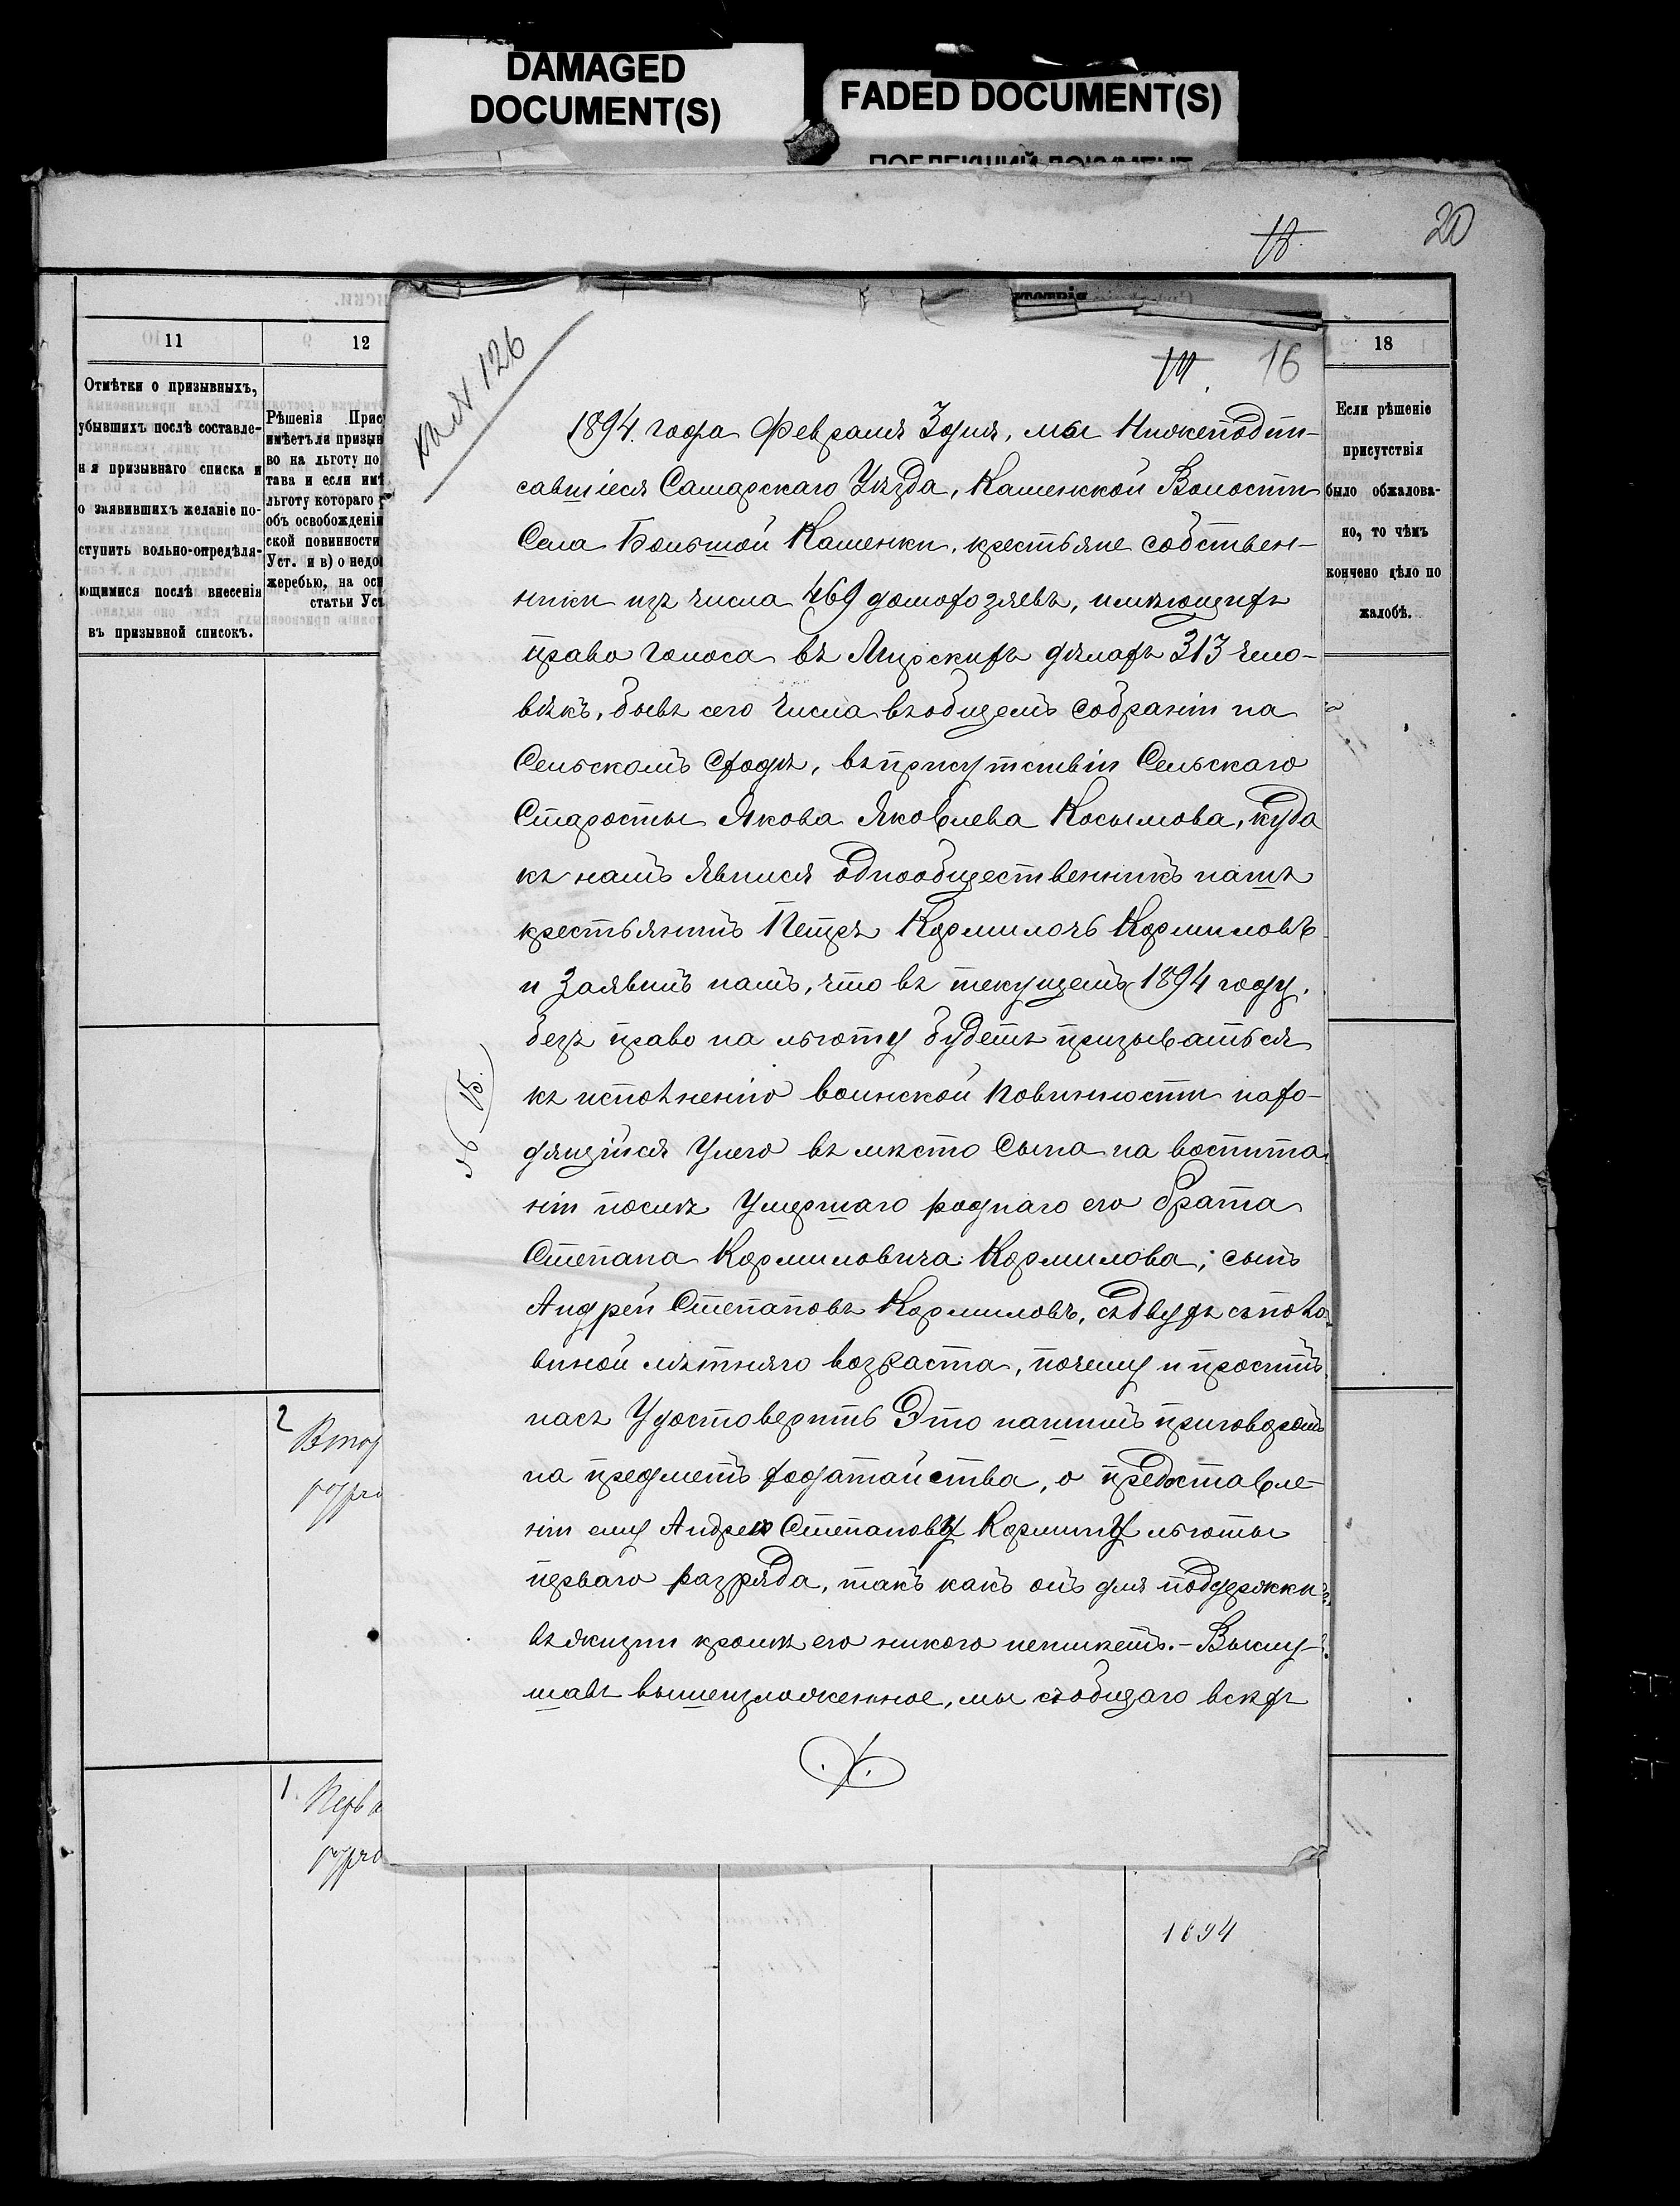 DAMAGED
DOCUMENT(S)
FADED DOCUMENT(S)
20
18
11
12
18
Отмѣтки о призывныхъ,
убывшихъ послѣ составле-
нія призывнаго списка и
о заявившихъ желаніе по-
ступить вольно-опредѣля-
ющимися послѣ внесенія
въ призывной списокъ.
Рѣшенія Прис
имѣетъ ли призыв
во на льготу по
тава и если имѣ
льготу котораго р
объ освобожденіи
ской повинности
Уст. и в) о недо
жеребью, на осн
статьи Уст
Если рѣшеніе
присутствія
было обжалова-
но, то чѣмъ
кончено дѣло по
жалобѣ.
къ № 126
16
1894. года Февраля 3 дня, мы Нижеподпи-
савшіеся Самарскаго Уѣзда, Каменской Волости
Села Большой Каменки, крестьяне собствен-
ники изъ числа 469 домохозяевъ, имѣющихъ
право голоса въ Мирскихъ дѣлахъ 313 чело-
вѣкъ, бывъ сего числа въ общемъ собраніи на
Сельскомъ Сходѣ, въ присутствіи Сельскаго
Старосты Якова Яковлева Косымова, куда
къ намъ явился однообщественникъ нашъ
крестьянинъ Петръ Кормиловъ Кормиловъ
и Заявилъ намъ, что въ текущемъ 1894 году.
безъ право на льготу будетъ призываться
къ исполненію воинской повинности нахо-
дящійся у него въ мѣсто Сына на воспита
ніи послѣ Умершаго роднаго его брата
Степана Кормиловича Кормилова; сынъ
Андрей Степановъ Кормиловъ, съ двухъ съ поло
виной лѣтняго возраста, почему и проситъ
насъ Удостоверить Это нашимъ приговоромъ
на предметъ ходатайства, о предоставле-
ніи ему Андрею Степанову Кормилу льготы
перваго разряда, такъ какъ онъ для поддержки
въ жизни кромѣ его никого неимѣетъ. - Выслу-
шавъ вышеизложенное, мы съобщаго всѣхъ
2
Втор
1.
Перва
1894